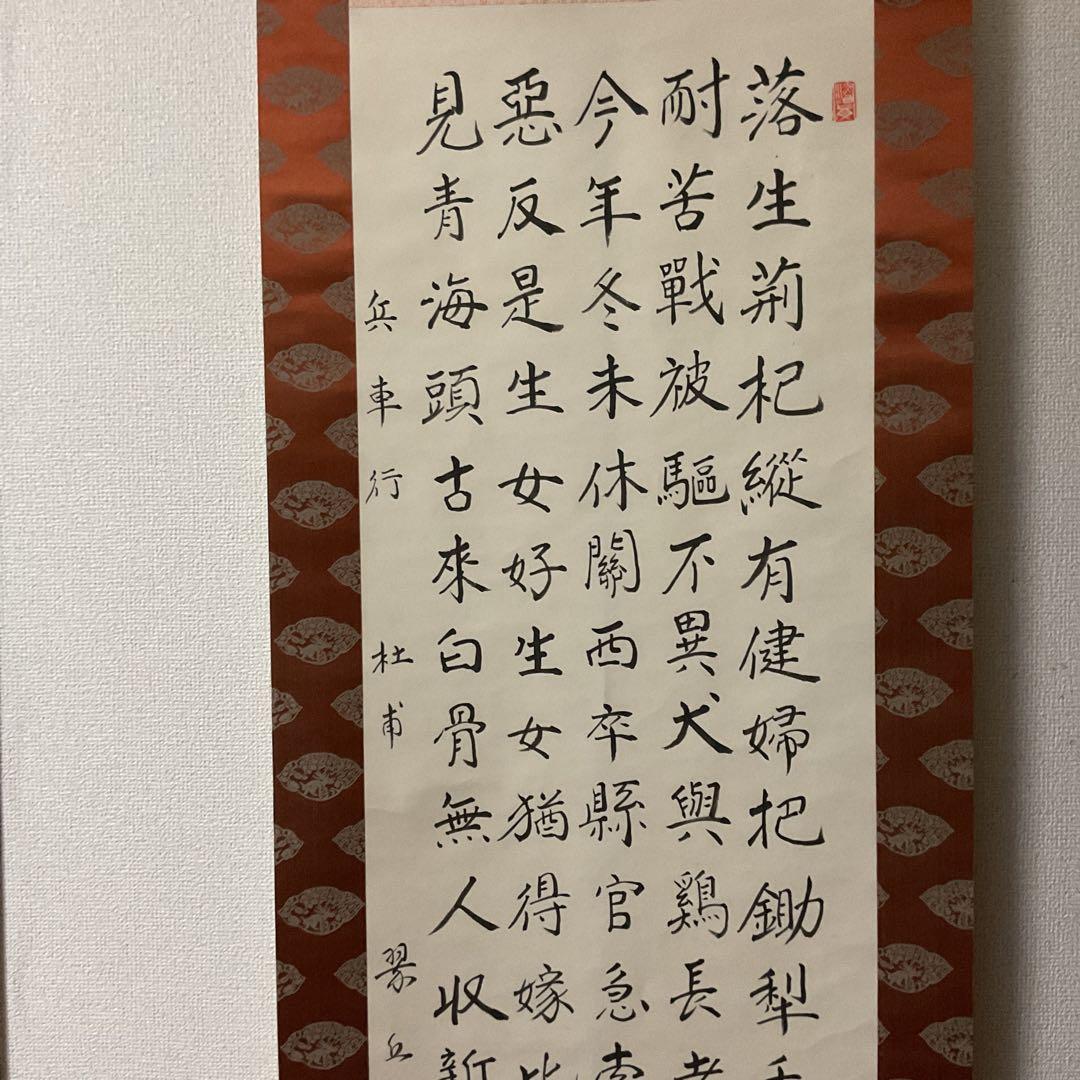 落生荊杞縱有健婦把鋤犁
耐苦戰被驅不異犬與鷄長老
今年冬未休關西卒縣官急索
惡反是生女好生女猶得嫁比
見青海頭古來白骨無人收新
兵車行 杜甫 翠丘